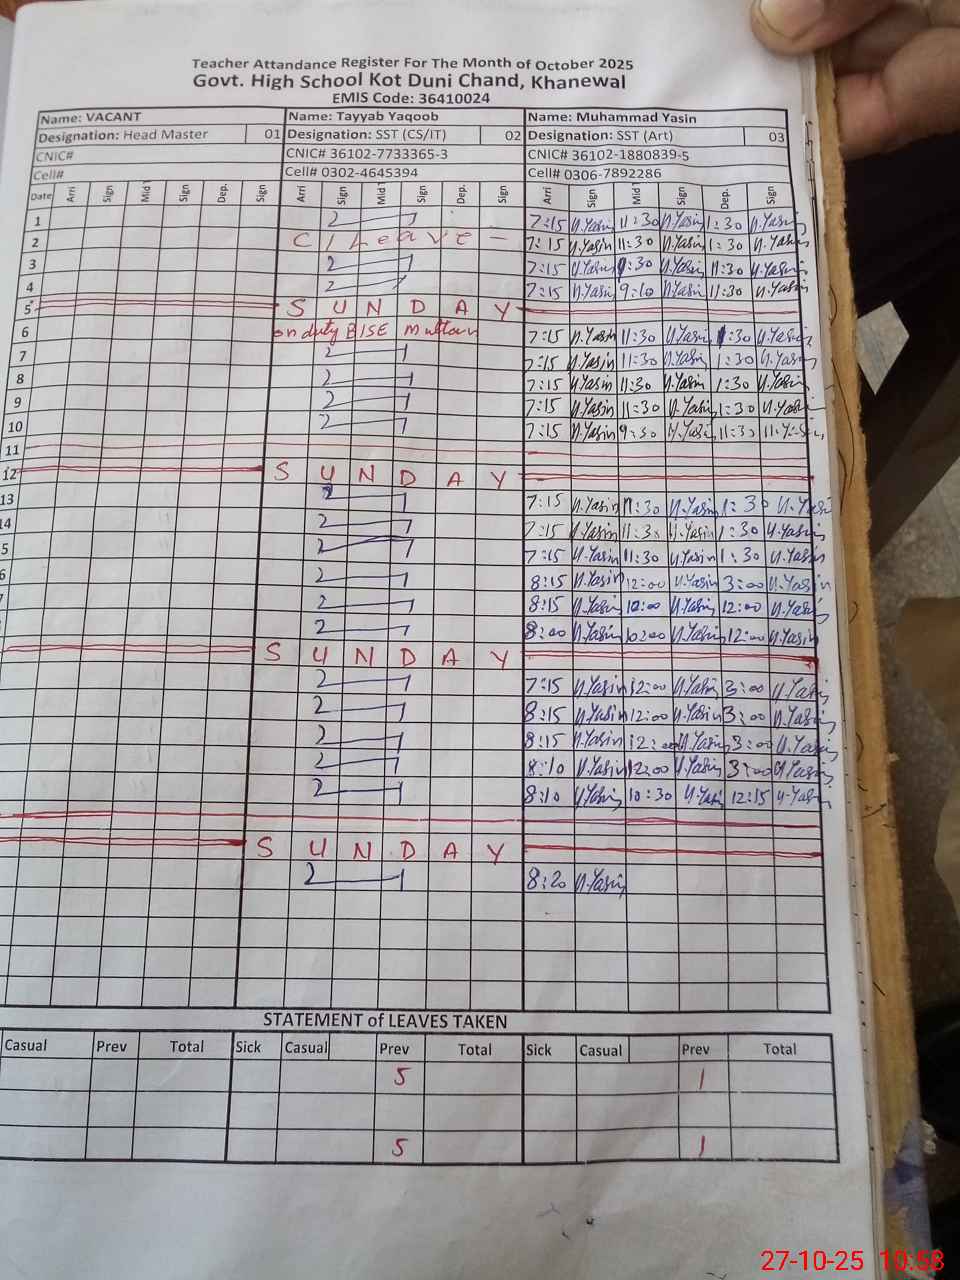 Teacher Attandance Register For The Month of October 2025
Govt. High School Kot Duni Chand, Khanewal
EMIS Code: 36410024
Name: VACANT Name: Tayyab Yaqoob Name: Muhammad Yasin
Designation: Head Master 01 Designation: SST (CS/IT) 02 Designation: SST (Art) 03
CNIC# CNIC# 36102-7733365-3 CNIC# 36102-1880839-5
Cell# Cell# 0302-4645394 Cell# 0306-7892286
Date Arri Sign Mid Sign Dep. Sign Arri Sign Mid Sign Dep. Sign Arri Sign Mid Sign Dep. Sign
1 7:15 M.Yasin 11:30 M.Yasin 1:30 M.Yasin
2 C/Leave - 7:15 M.Yasin 11:30 M.Yasin 1:30 M.Yasin
3 7:15 M.Yasin 9:30 M.Yasin 11:30 M.Yasin
4 7:15 M.Yasin 9:10 M.Yasin 11:30 M.Yasin
5 SUNDAY
6 on duty BISE Multan 7:15 M.Yasin 11:30 M.Yasin 1:30 M.Yasin
7 7:15 M.Yasin 11:30 M.Yasin 1:30 M.Yasin
8 7:15 M.Yasin 11:30 M.Yasin 1:30 M.Yasin
9 7:15 M.Yasin 11:30 M.Yasin 1:30 M.Yasin
10 7:15 M.Yasin 9:30 M.Yasin 11:30 M.Yasin
11
12 SUNDAY
13 7:15 M.Yasin 11:30 M.Yasin 1:30 M.Yasin
14 7:15 M.Yasin 11:30 M.Yasin 1:30 M.Yasin
5 7:15 M.Yasin 11:30 M.Yasin 1:30 M.Yasin
6 8:15 M.Yasin 12:00 M.Yasin 3:00 M.Yasin
8:15 M.Yasin 10:00 M.Yasin 12:00 M.Yasin
8:00 M.Yasin 10:00 M.Yasin 12:00 M.Yasin
SUNDAY
7:15 M.Yasin 12:00 M.Yasin 3:00 M.Yasin
8:15 M.Yasin 12:00 M.Yasin 3:00 M.Yasin
8:15 M.Yasin 12:00 M.Yasin 3:00 M.Yasin
8:10 M.Yasin 12:00 M.Yasin 3:00 M.Yasin
8:10 M.Yasin 10:30 M.Yasin 12:15 M.Yasin
SUNDAY
8:20 M.Yasin
STATEMENT of LEAVES TAKEN
Casual Prev Total Sick Casual Prev Total Sick Casual Prev Total
5 1
5 1
27-10-25 10:58